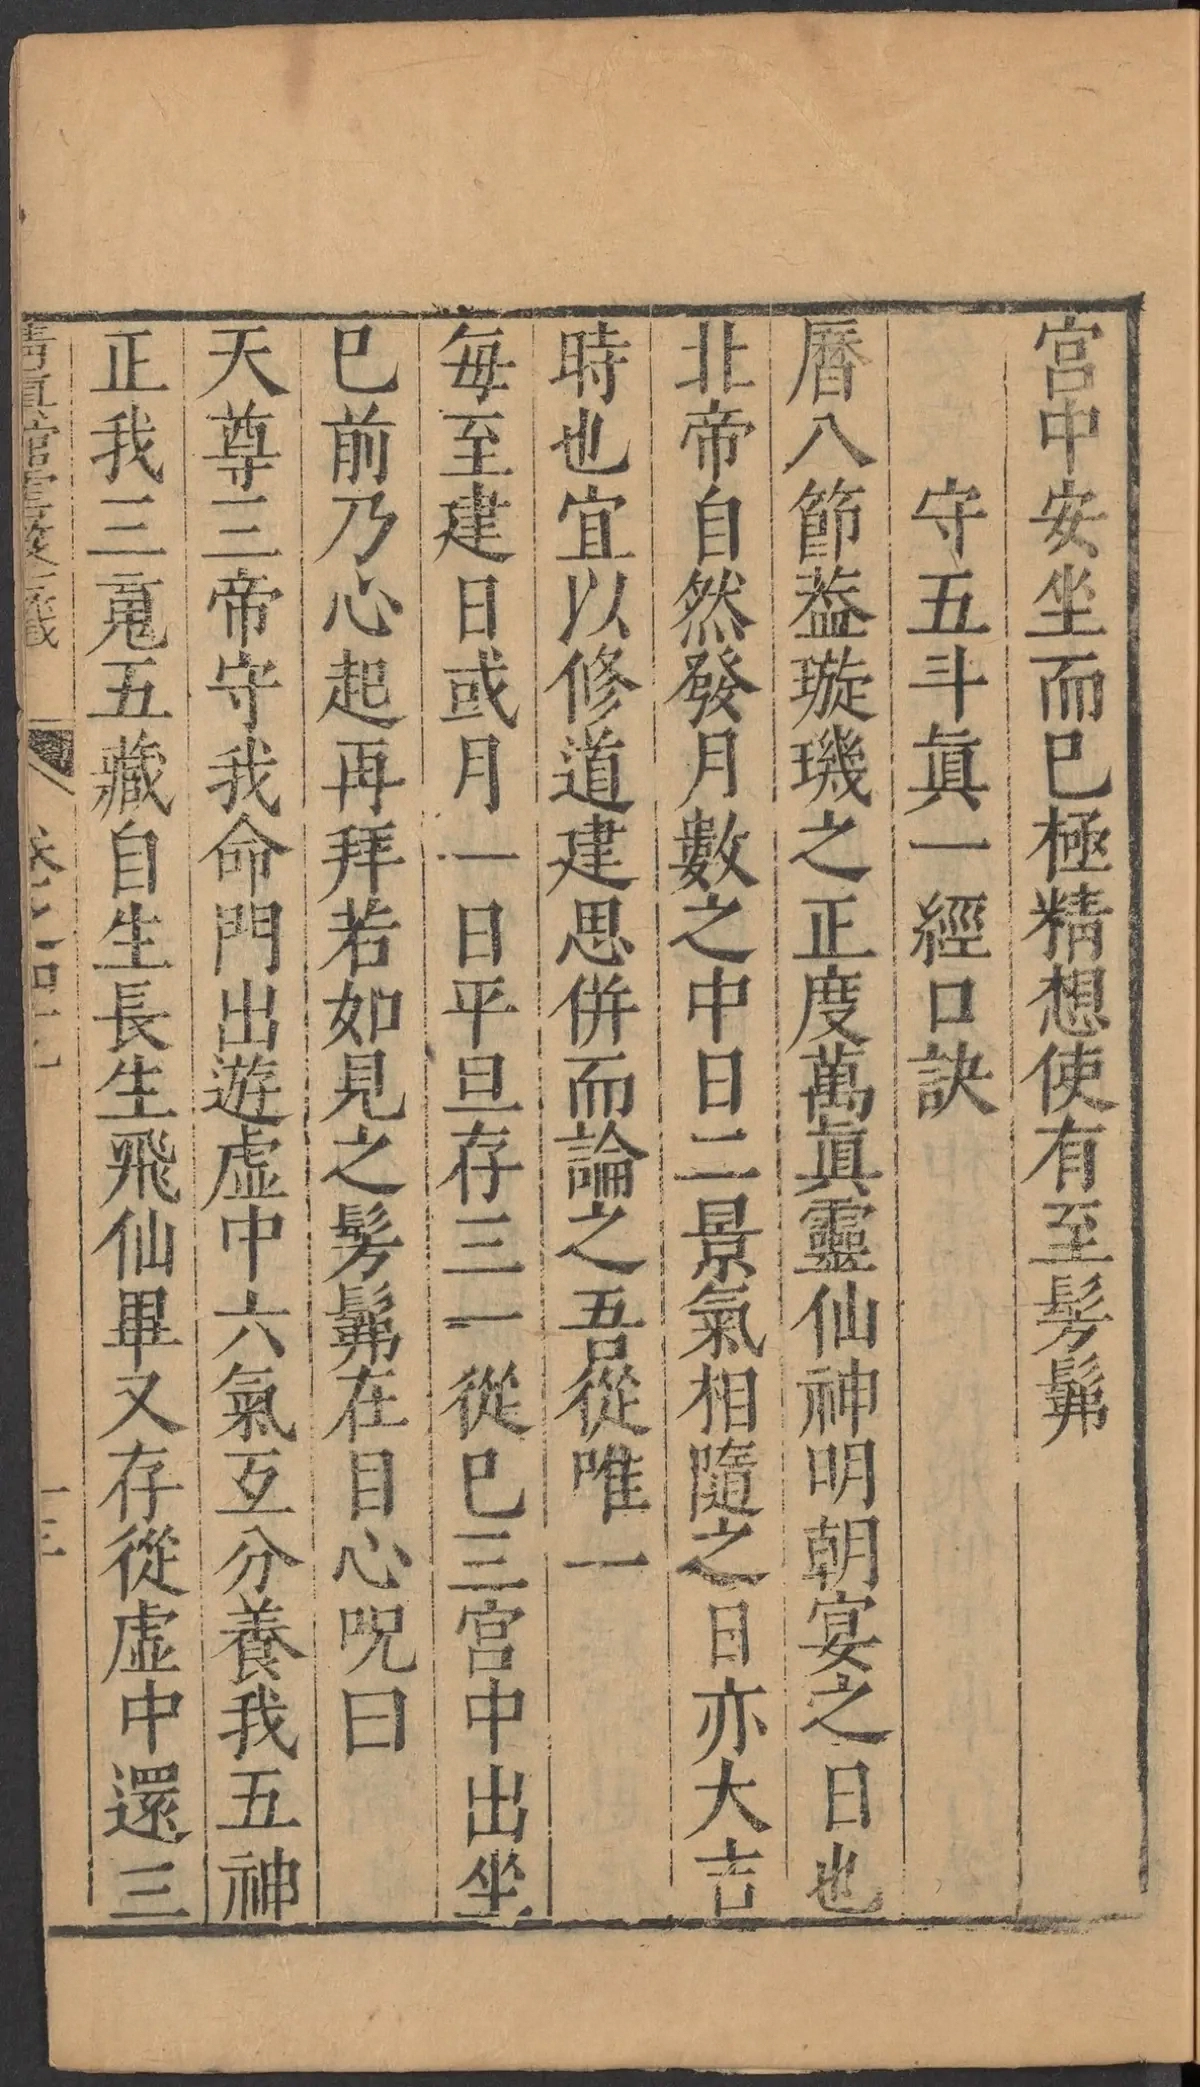 宫中安坐而巳極精想使有至髣髴
守五斗眞一經口訣
曆八節葢璇璣之正度萬眞靈仙神明朝宴之日也
北帝自然發月數之中日二景氣相隨之日亦大吉
時也宜以修道建思併而論之吾從唯一
每至建日或月一日平旦存三一從巳三宮中出坐
巳前乃心起再拜若如見之髣髴在目心呪曰
天尊三帝守我命門出遊虛中六氣互分養我五神
正我三䰟五藏自生長生飛仙畢又存從虛中還三
清眞館雲笈七籤
卷之四十九
十三